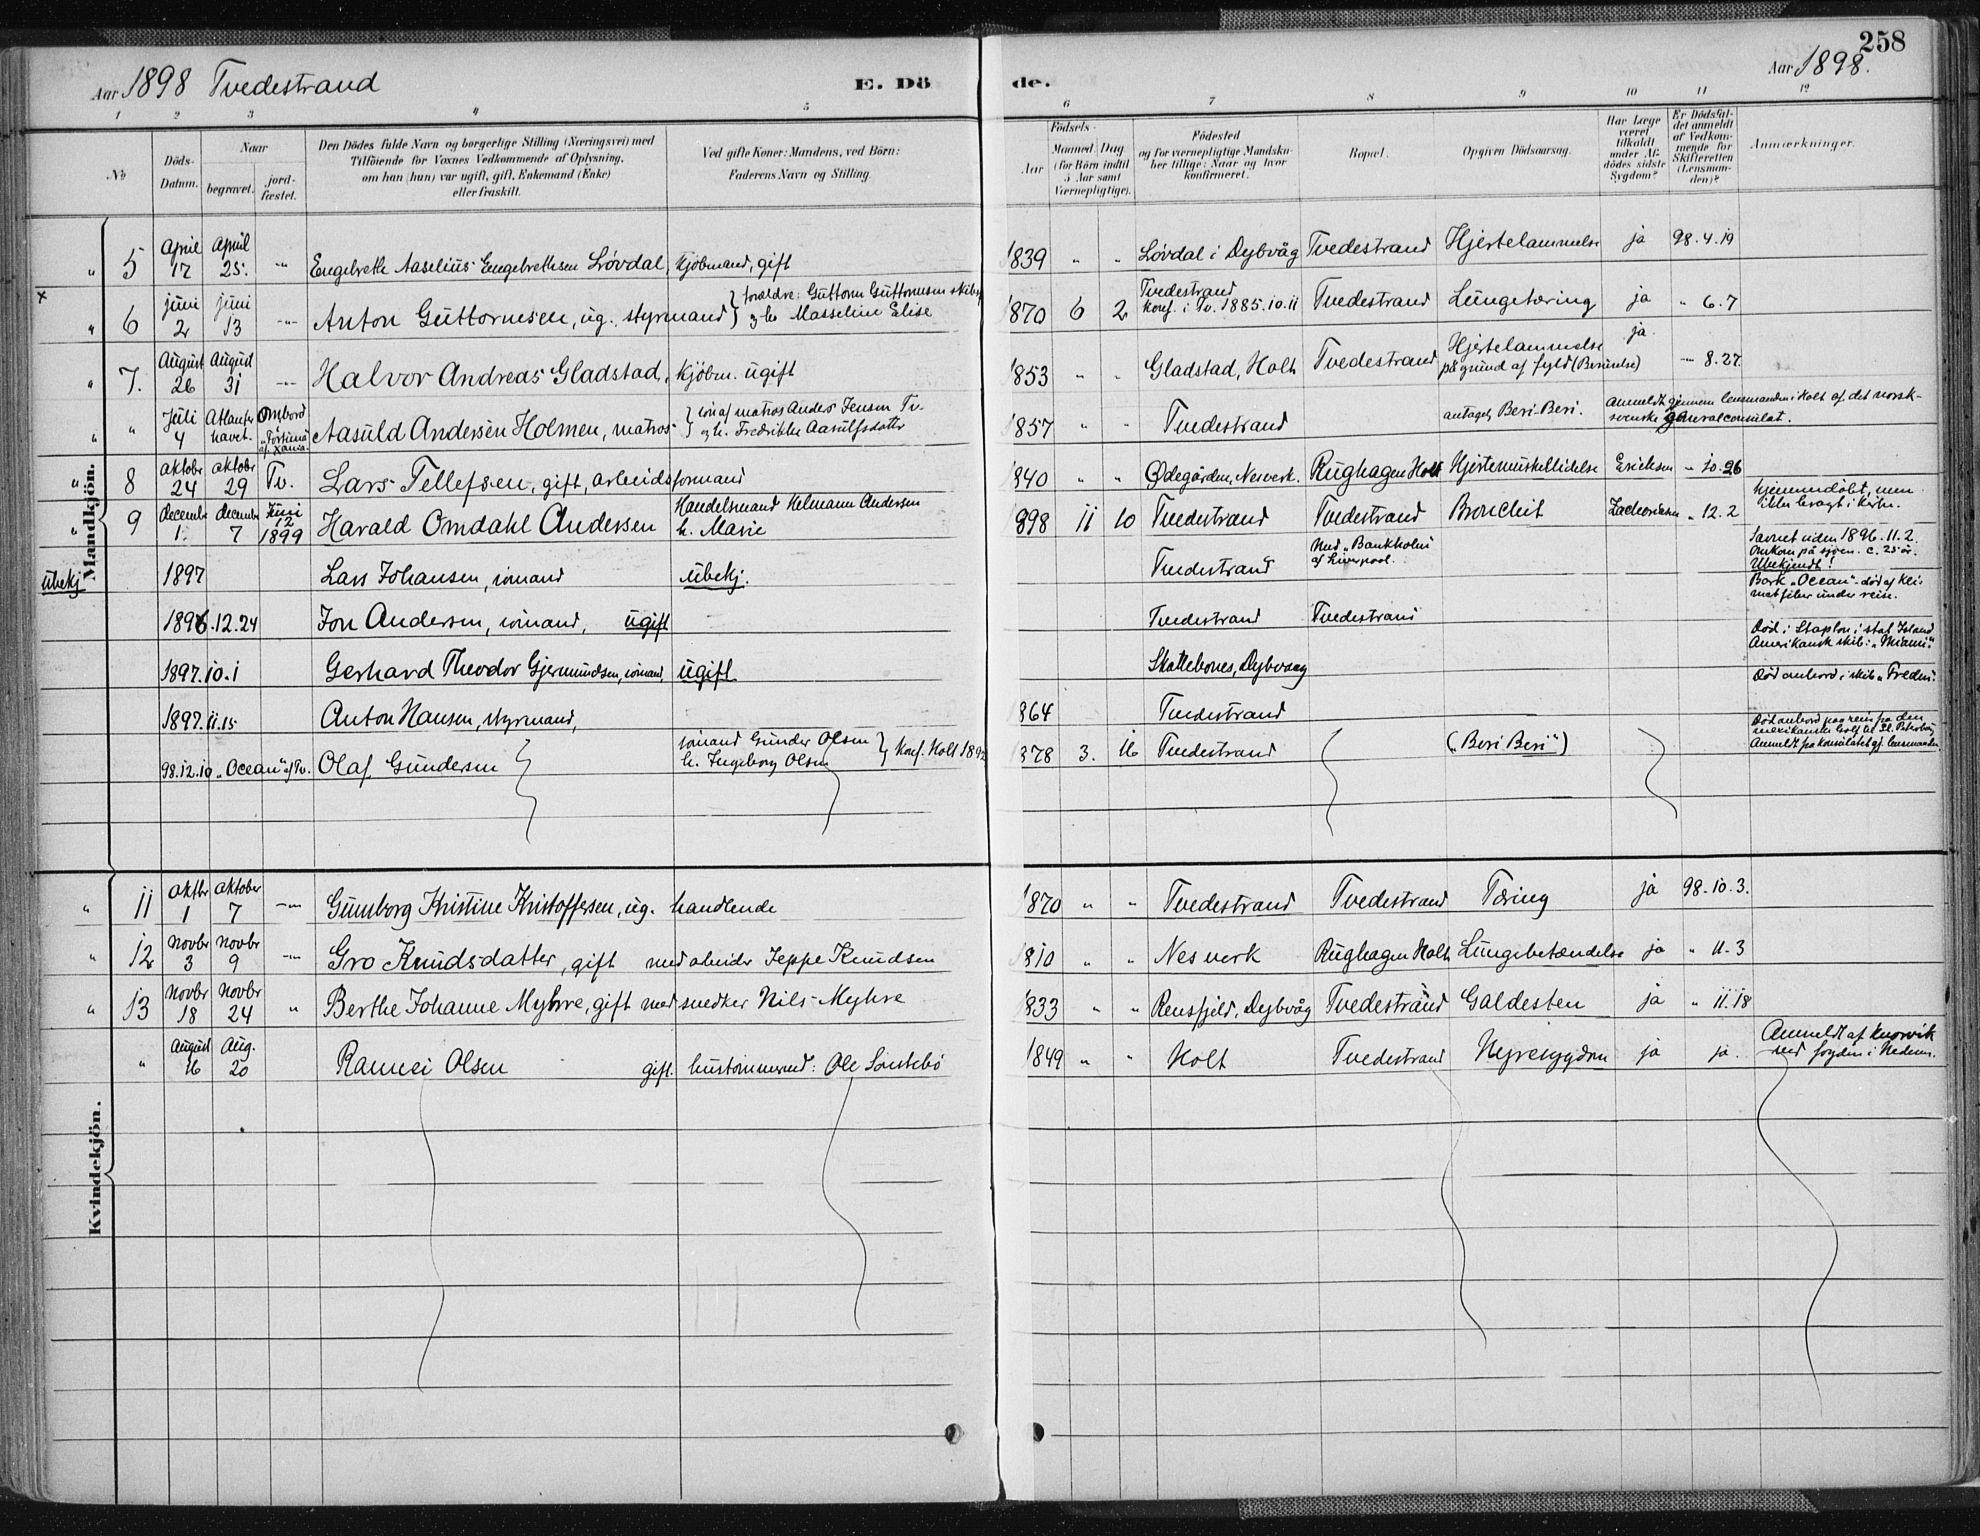 258
Aar 1898 Tvedestrand
E. Dö
de.
Aar 1898.
1 2 3 4 5 6 7 8 9 10 11 12
No
Döds-
Datum.
Naar
begravet.
jord-
fæstet.
Den Dödes fulde Navn og borgerlige Stilling (Næringsvei) med
Tilföiende for Voxnes Vedkommende af Oplysning,
om han (hun) var ugift, gift, Enkemand (Enke)
eller fraskilt.
Ved gifte Koner: Mandens, ved Börn:
Faderens Navn og Stilling.
Födsels-
Aar
Maaned. Dag
(for Börn indtil
5 Aar samt
Værnepligtige).
Födested
og for værnepligtige Mandska-
ber tillige: Naar og hvor
konfirmeret.
Bopæl.
Opgiven Dödsaarsag.
Har Læge
været
tilkaldt
under Af-
dödes sidste
Sygdom?
Er Dödsfal-
det anmeldt
af Vedkom-
mende for
Skifteretten
(Lensman-
den)?
Anmærkninger.
Mandkjön.
" 5 April 17 April 25. " Engebreth Aaselius Engebrethsen Løvdal, Kjöbmand, gift 1839 " " Løvdal i Dybvåg Tvedestrand Hjertelammelse ja 98.4.19
x
" 6 juni 2 juni 13 " Anton Guttormsen, ug. styrmand } forældre: Guttorm Guttormsen
og h. Masseline Elise 1870 6 2 Tvedestrand
konf. i Tv. 1885.10.11 Tvedestrand Lungetæring ja " 6.7
" 7. August 26 August 31 " Halvor Andreas Gladstad, kjöbm. ugift 1853 " " Gladstad, Holt Tvedestrand Hjertelammelse
på grund af fyld ja. " 8.27
" " Juli 4 Atlanter havet. Ombord "Fortuna" af Xania. Aasuld Andersen Holmen, matros } sön af matros Anders Jensen Tv.
og h. Fredrikke Aasulfsdatter 1857 " " Tvedestrand antagel. Beri-Beri. anmeldt gjennem lensmanden i Holt af det norsk-
svenske generalconsulat.
" 8 oktobr 24 oktobr 29 Tv. Lars Tellefsen, gift, arbeidsformand 1840 " " Ødegården, Nesverk. Rughagen Holt Hjertemuskellidelse Ericksen " 10.26
" 9 december 1. december 7 Juni 12 1899 Harald Omdahl Andersen Handelsmand Helmann Andersen
h. Marie 898 11 10 Tvedestrand Tvedestrand Bronchit " 12.2 hjemmedöbt, men
ikke bragt i kirke.
ubekj 1897 Lars Johansen, sömand ubekj. Tvedestrand Med "Bankholm"
af Liverpool. Savnet siden 1896.11.2.
Omkom på sjøen. c. 25 år.
Ubekjendt!
1896.12.24 Jon Andersen, sömand, ugift Tvedestrand Tvedestrand Bark "Ocean" död af kli-
matfeber under reise.
1897.10.1 Gerhard Theodor Gjermundsen, sömand, ugift Skottebones, Dybvaag Död i Staplon i stat Island
Amerikansk skib: "Miami".
1897.11.15 Anton Hansen, styrmand, 864 Tvedestrand Död ombord i skib "Freden".
98.12.10 "Ocean" af Tv. Olaf Gundersen sömand Gunder Olsen
h. Ingeborg Olsen } Konf. Holt 1892 878 3. 16 Tvedestrand ("Beri Beri") Död ombord paa reise fra den
mexikanske Golf til St. Petersburg
Anmeldt fra konsulatet gj. lensmanden.
Kvindekjön.
" 11 oktbr 1 oktober 7 " Gunborg Kristine Kristoffersen, ug. handlende 1870 " " Tvedestrand Tvedestrand Tæring ja 98.10.3.
" 12 novbr 3 novbr 9 " Gro Knudsdatter, gift med arbeider Jeppe Knudsen 1810 " " Nesverk Rughagen Holt Lungebetændelse ja " 11.3
" 13 novbr 18 novbr 24 " Berthe Johanne Myhre, gift med snedker Nils Myhre 1833 " " Rensfjeld, Dybvåg Tvedestrand Galdesten ja " 11.18
" August 16 Aug. 20 Rannei Olsen gift. hustommermd: Ole 1849 " " Holt Tvedestrand Nyresygdom ja ja. Anmeldt af Knorvik
ved fogden i Nedenes.